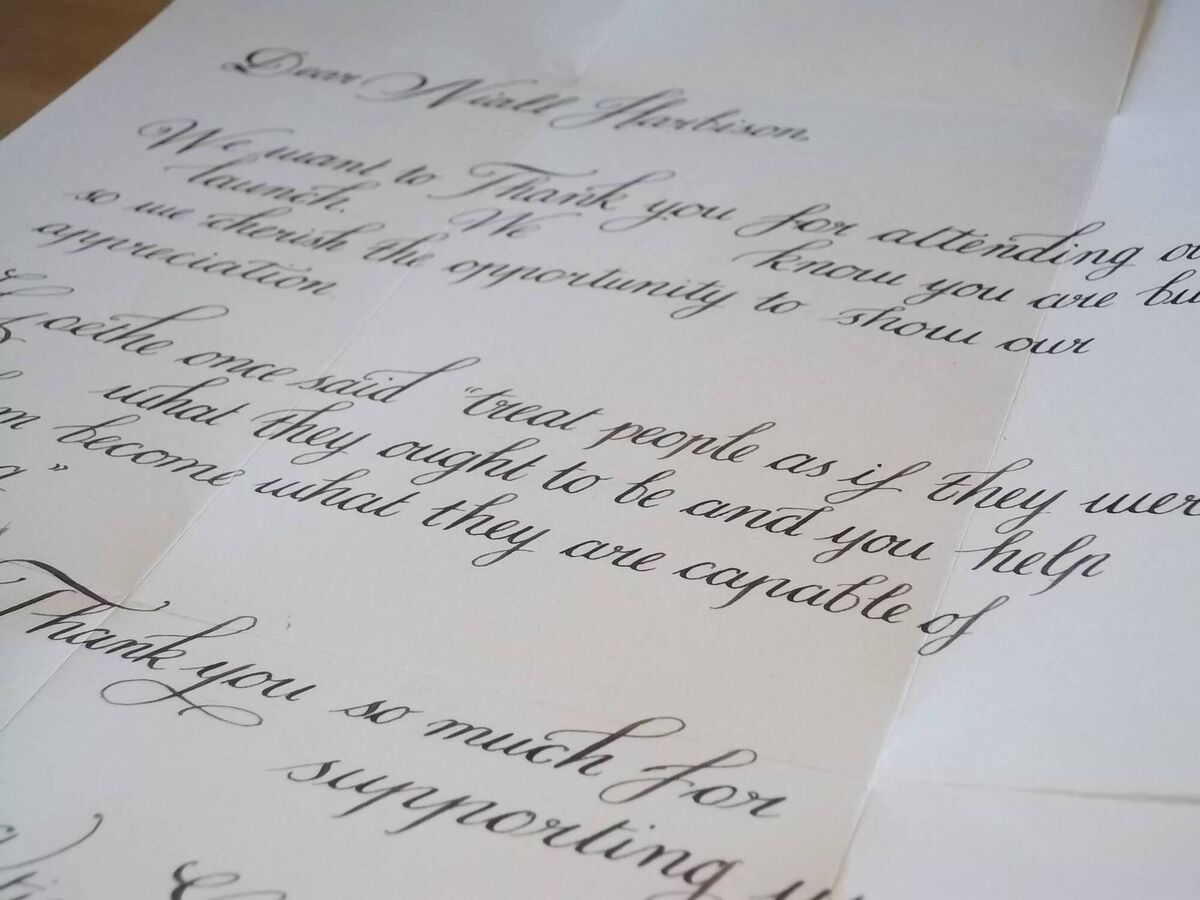 Dear Niall Harbison,
We want to Thank you for attending
launch. We know you are
so we cherish the opportunity to show our
appreciation.
Goethe once said "treat people as if they
what they ought to be and you help
become what they are capable of
"
Thank you so much for
supporting